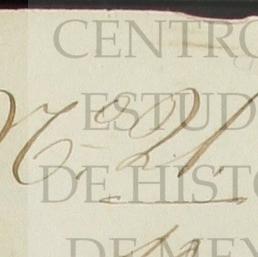 CENTRO
ESTUD
DE HISTO
DE MEX
Nº 21.